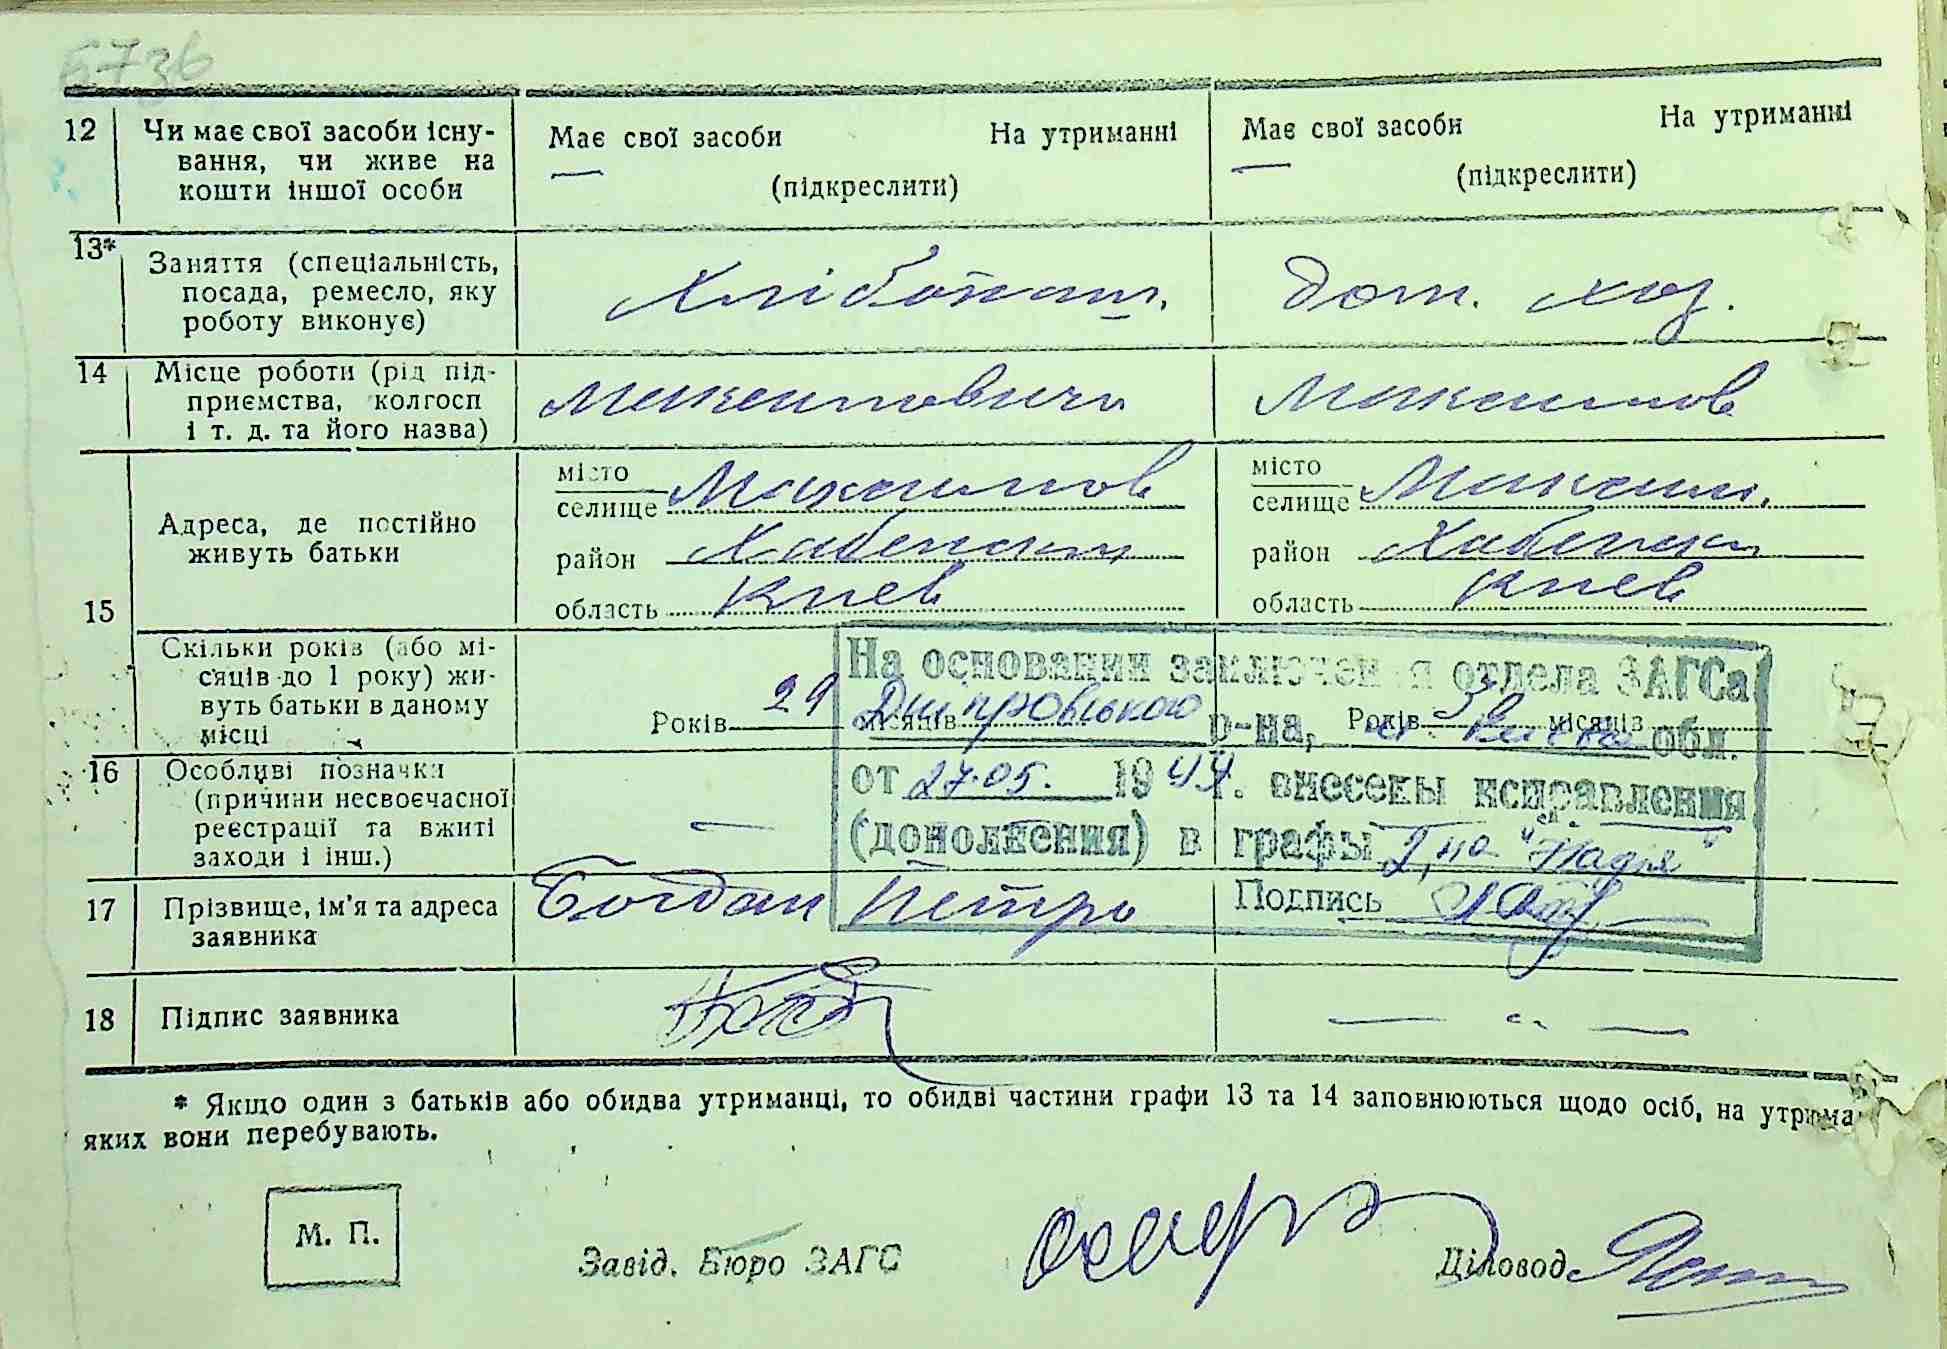 6736
12 Чи має свої засоби існу-
вання, чи живе на
кошти іншої особи
Має свої засоби На утриманні
(підкреслити)
Має свої засоби На утриманні
(підкреслити)
13* Заняття (спеціальність,
посада, ремесло, яку
роботу виконує)
Хлібопаш.
Дом. хоз.
14 Місце роботи (рід під-
приємства, колгосп
і т. д. та його назва)
Максимовичи
Максимов
15 Адреса, де постійно
живуть батьки
місто
селище Максимов
район
область Киев
місто
селище Максим.
район
область Киев
Скільки років (або мі-
сяців до 1 року) жи-
вуть батьки в даному
місці
Років 29 місяців
Років місяців
На основании заключения отдела ЗАГСа
Дніпровського р-на, обл.
от 27.05. 1944 г. внесены исправления
(дополнения) в графы 2, на "Надя"
Подпись
16 Особливі позначки
(причини несвоєчасної
реєстрації та вжиті
заходи і інш.)
—
17 Прізвище, ім'я та адреса
заявника
Богдан Петро
18 Підпис заявника
— " —
* Якщо один з батьків або обидва утриманці, то обидві частини графи 13 та 14 заповнюються щодо осіб, на утрима
яких вони перебувають.
М. П.
Завід. Бюро ЗАГС
Діловод